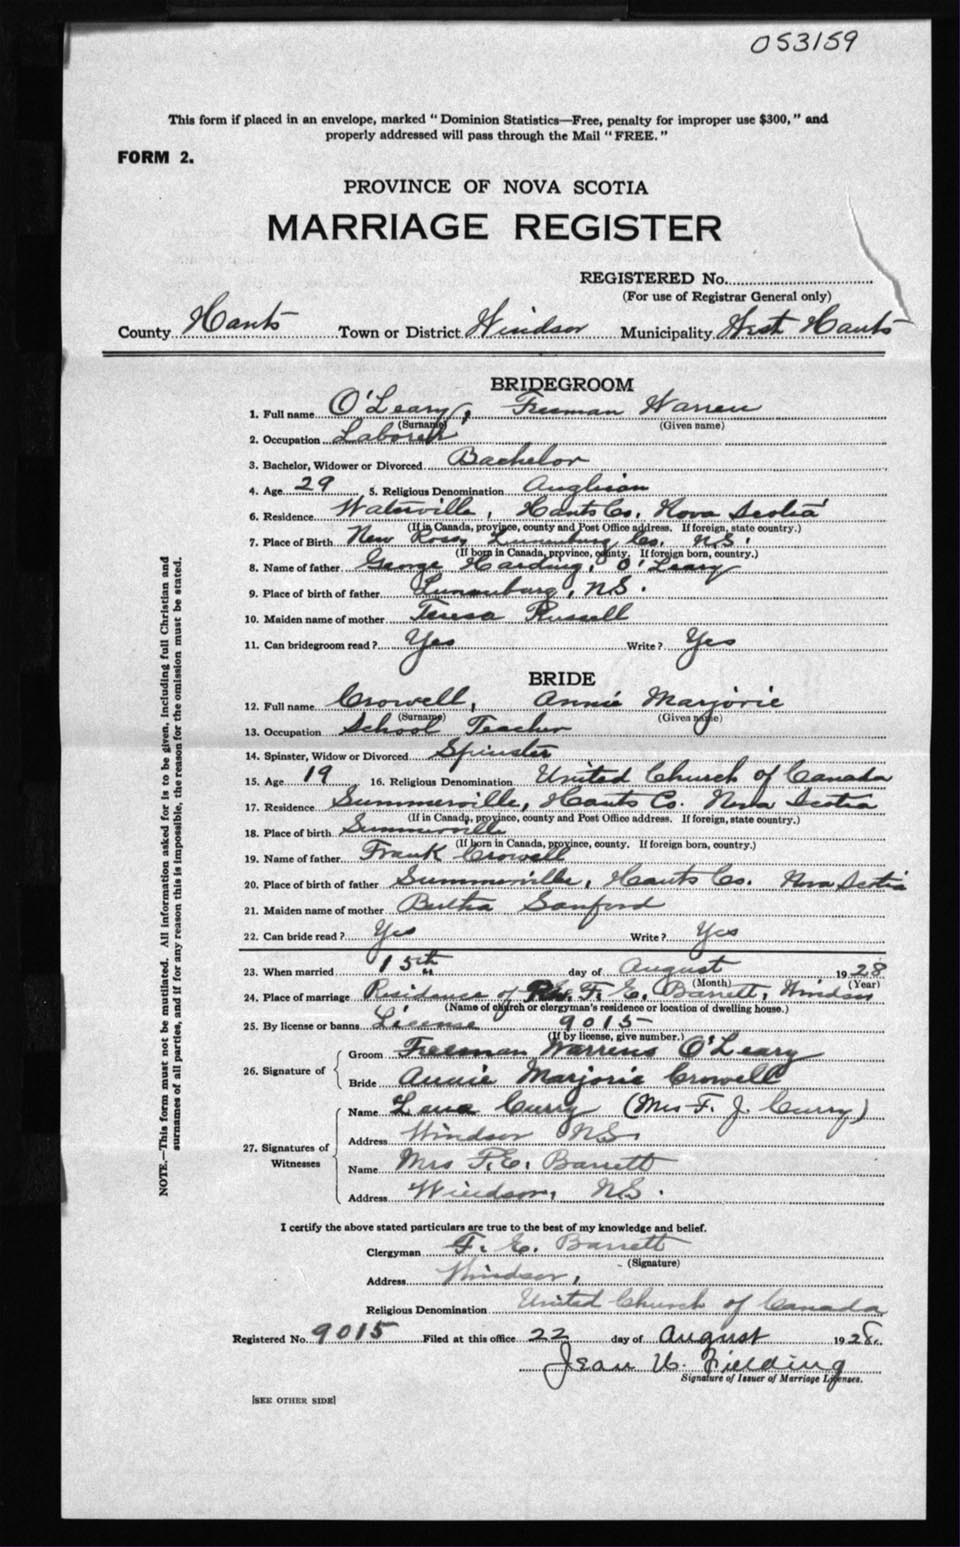 053159
This form if placed in an envelope, marked “ Dominion Statistics—Free, penalty for improper use $300, ” and
properly addressed will pass through the Mail “ FREE. ”
FORM 2.
PROVINCE OF NOVA SCOTIA
MARRIAGE REGISTER
REGISTERED No.
(For use of Registrar General only)
County Hants Town or District Windsor Municipality West Hants
BRIDEGROOM
1. Full name O'Leary, Freeman Warren
(Surname) (Given name)
2. Occupation Laborer
3. Bachelor, Widower or Divorced Bachelor
4. Age 29 5. Religious Denomination Anglican
6. Residence Waterville, Hants Co. Nova Scotia
(If in Canada, province, county and Post Office address. If foreign, state country.)
7. Place of Birth New Ross, Lunenburg Co. N.S.
(If born in Canada, province, county. If foreign born, country.)
8. Name of father George Harding O'Leary
9. Place of birth of father Lunenburg, N.S.
10. Maiden name of mother Teresa Russell
11. Can bridegroom read ? Yes Write ? Yes
BRIDE
12. Full name Crowell, Annie Marjorie
(Surname) (Given name)
13. Occupation School Teacher
14. Spinster, Widow or Divorced Spinster
15. Age 19 16. Religious Denomination United Church of Canada
17. Residence Summerville, Hants Co. Nova Scotia
(If in Canada, province, county and Post Office address. If foreign, state country.)
18. Place of birth Summerville
(If born in Canada, province, county. If foreign born, country.)
19. Name of father Frank Crowell
20. Place of birth of father Summerville, Hants Co. Nova Scotia
21. Maiden name of mother Bertha Sanford
22. Can bride read ? Yes Write ? Yes
23. When married 15th day of August 1928
(Month) (Year)
24. Place of marriage Residence of Rev. F. E. Barrett, Windsor
(Name of church or clergyman's residence or location of dwelling house.)
25. By license or banns License 9015
(If by license, give number.)
26. Signature of
Groom Freeman Warrens O'Leary
Bride Annie Marjorie Crowell
27. Signatures of Witnesses
Name Lana Curry (Mrs F. J. Curry)
Address Windsor N.S.
Name Mrs F. E. Barrett
Address Windsor, N.S.
I certify the above stated particulars are true to the best of my knowledge and belief.
Clergyman F. E. Barrett
(Signature)
Address Windsor,
Religious Denomination United Church of Canada
Registered No. 9015 Filed at this office 22 day of August 1928.
Jean U. Fielding
Signature of Issuer of Marriage Licenses.
[SEE OTHER SIDE]
NOTE.—This form must not be mutilated. All information asked for is to be given, including full Christian and
surnames of all parties, and if for any reason this is impossible, the reason for the omission must be stated.